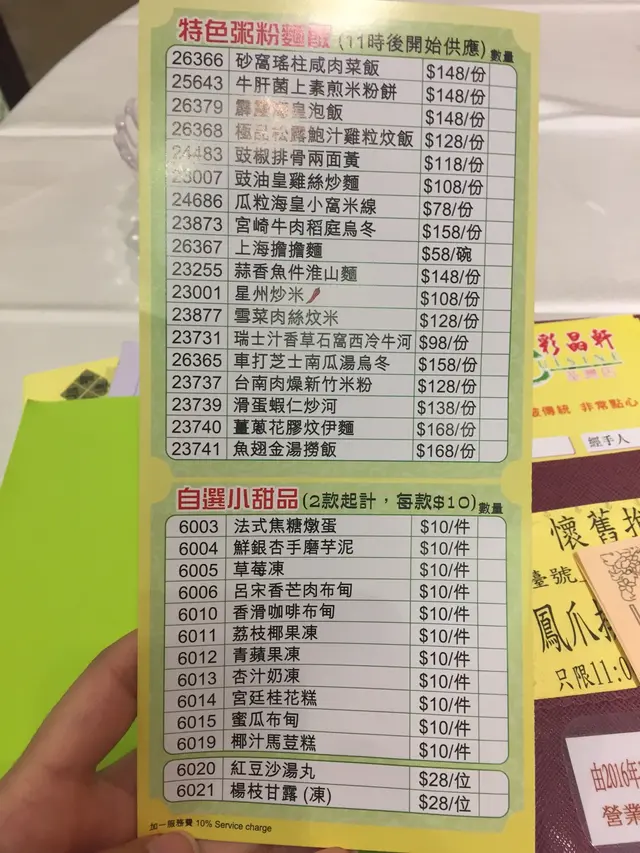 特色粥粉麵飯 (11時後開始供應) 數量
26366 砂窩瑤柱咸肉菜飯 $148/份
25643 牛肝菌上素煎米粉餅 $148/份
26379 霹靂海皇泡飯 $148/份
26368 極品松露鮑汁雞粒炆飯 $128/份
24483 豉椒排骨兩面黃 $118/份
23007 豉油皇雞絲炒麵 $108/份
24686 瓜粒海皇小窩米線 $78/份
23873 宮崎牛肉稻庭烏冬 $158/份
26367 上海擔擔麵 $58/碗
23255 蒜香魚件淮山麵 $148/份
23001 星州炒米 $108/份
23877 雪菜肉絲炆米 $128/份
23731 瑞士汁香草石窩西冷牛河 $98/份
26365 車打芝士南瓜湯烏冬 $158/份
23737 台南肉燥新竹米粉 $128/份
23739 滑蛋蝦仁炒河 $138/份
23740 薑蔥花膠炆伊麵 $168/份
23741 魚翅金湯撈飯 $168/份
自選小甜品 (2款起計，每款$10) 數量
6003 法式焦糖燉蛋 $10/件
6004 鮮銀杏手磨芋泥 $10/件
6005 草莓凍 $10/件
6006 呂宋香芒肉布甸 $10/件
6010 香滑咖啡布甸 $10/件
6011 荔枝椰果凍 $10/件
6012 青蘋果凍 $10/件
6013 杏汁奶凍 $10/件
6014 宮廷桂花糕 $10/件
6015 蜜瓜布甸 $10/件
6019 椰汁馬荳糕 $10/件
6020 紅豆沙湯丸 $28/位
6021 楊枝甘露 (凍) $28/位
加一服務費 10% Service charge
彩晶軒
傳統 非常點心
經手人
懷舊
臺號
鳳爪
只限11:0
由2016年
營業